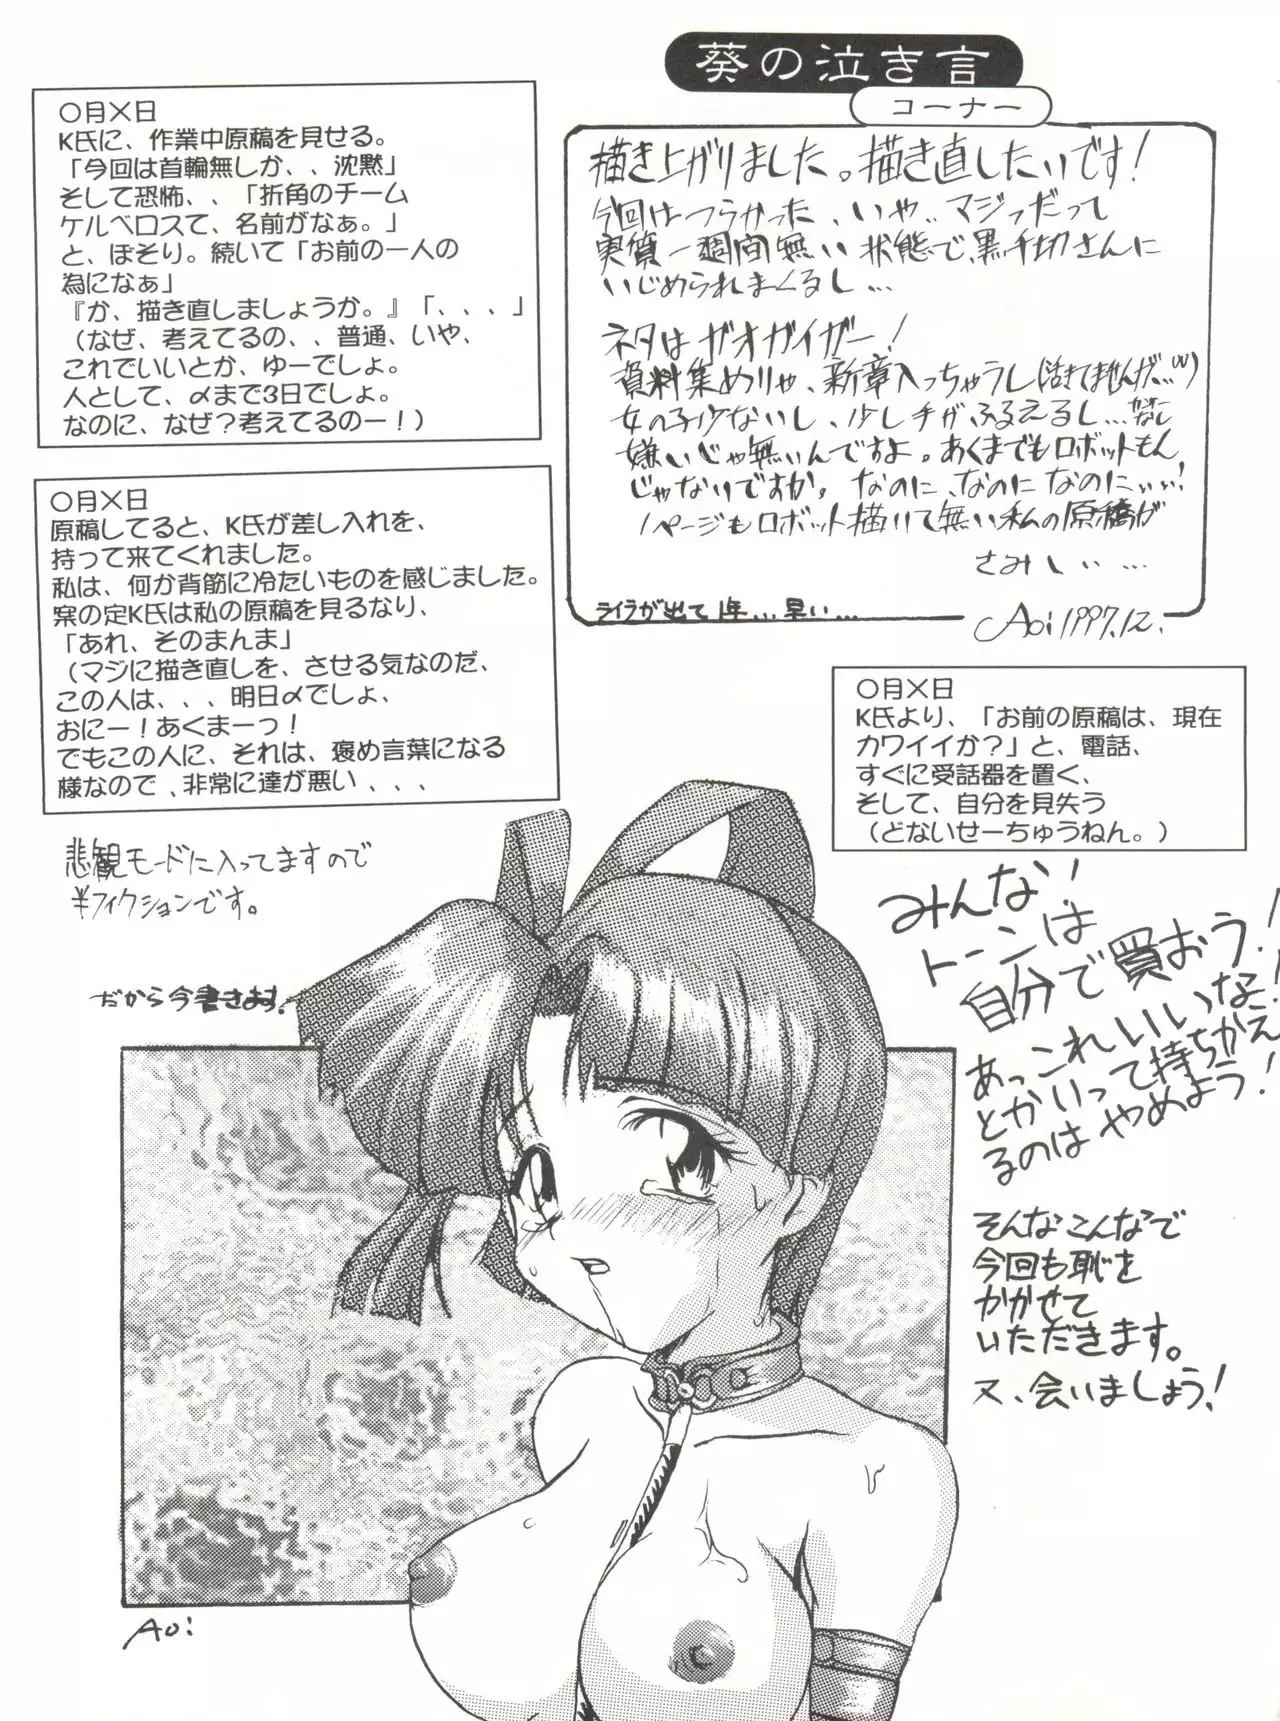 葵の泣き言
コーナー
描き上がりました。描き直したいです！
今回はつらかった、いや、マジっだって
実質一週間無い状態で、黒千切さんに
いじめられまくるし…
ネタはガオガイガー！
資料集めりゃ、新章入っちゃうし(泣きてませんげ…(W)
女の子少ないし、少し手がふるえるし…
嫌いじゃ無いんですよ。あくまでもロボットもん
じゃないですか。なのに、なのになのにいぃ！
1ページもロボット描いて無い私の原稿が
さみしい…
ライラが出て1年…早い…
Aoi 1997.12.
○月×日
K氏に、作業中原稿を見せる。
「今回は首輪無しか、、沈黙」
そして恐怖、、「折角のチーム
ケルベロスて、名前がなぁ。」
と、ぼそり。続いて「お前の一人の
為になぁ」
『か、描き直しましょうか。』「、、、」
（なぜ、考えてるの、、普通、いや、
これでいいとか、ゆーでしょ。
人として、〆まで3日でしょ。
なのに、なぜ？考えてるのー！）
○月×日
原稿してると、K氏が差し入れを、
持って来てくれました。
私は、何か背筋に冷たいものを感じました。
案の定K氏は私の原稿を見るなり、
「あれ、そのまんま」
（マジに描き直しを、させる気なのだ、
この人は、、、明日〆でしょ、
おにー！あくまーっ！
でもこの人に、それは、褒め言葉になる
様なので、非常に達が悪い、、、
○月×日
K氏より、「お前の原稿は、現在
カワイイか？」と、電話、
すぐに受話器を置く、
そして、自分を見失う
（どないせーちゅうねん。）
悲観モードに入ってますので
半フィクションです。
だから今書きます！
みんな！
トーンは
自分で買おう！
あっこれいいな！
とかいって持ちかえ
るのはやめよう！
そんなこんなで
今回も恥を
かかせて
いただきます。
又、会いましょう！
Aoi